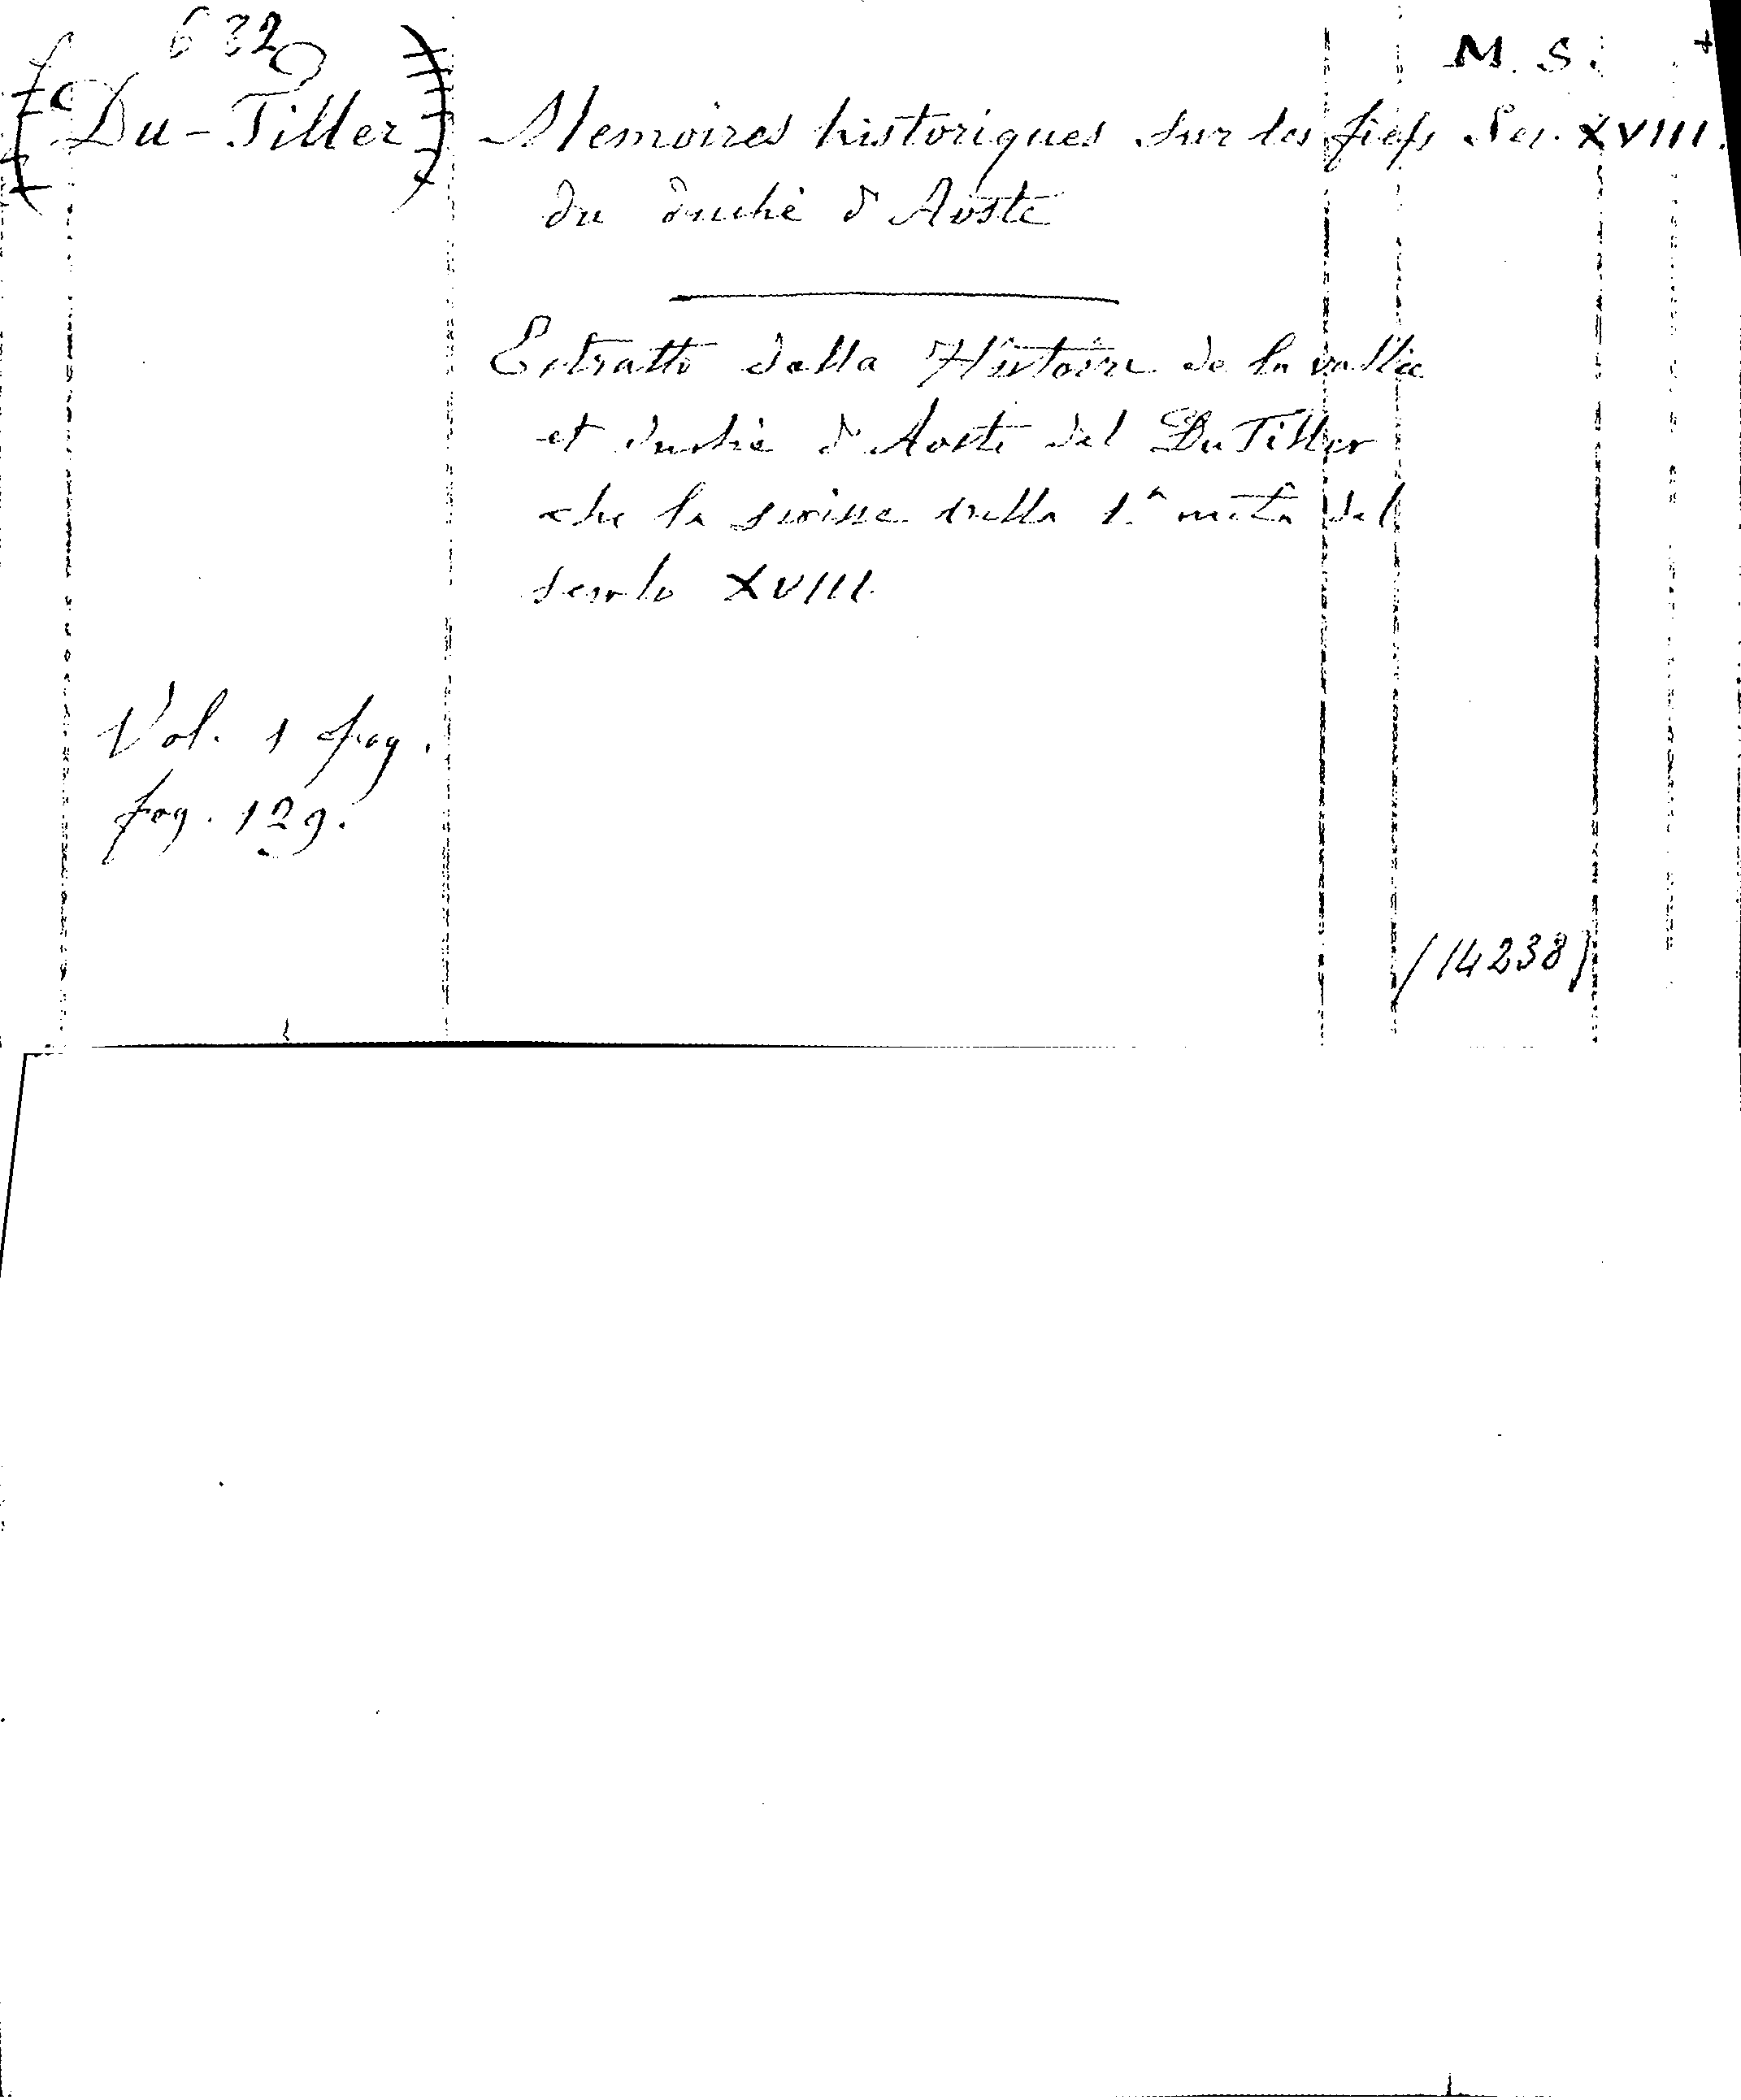 632
M. S. +
(Du-Tiller) Memoires historiques sur les fiefs Sec. XVIII.
du duché d'Aoste
Estratto dalla Histoire de la vallée
et duché d'Aoste del Du Tiller
che la scrisse nella 1.a metà del
secolo XVIII.
Vol. 1 fog.
fog. 129.
(14238)